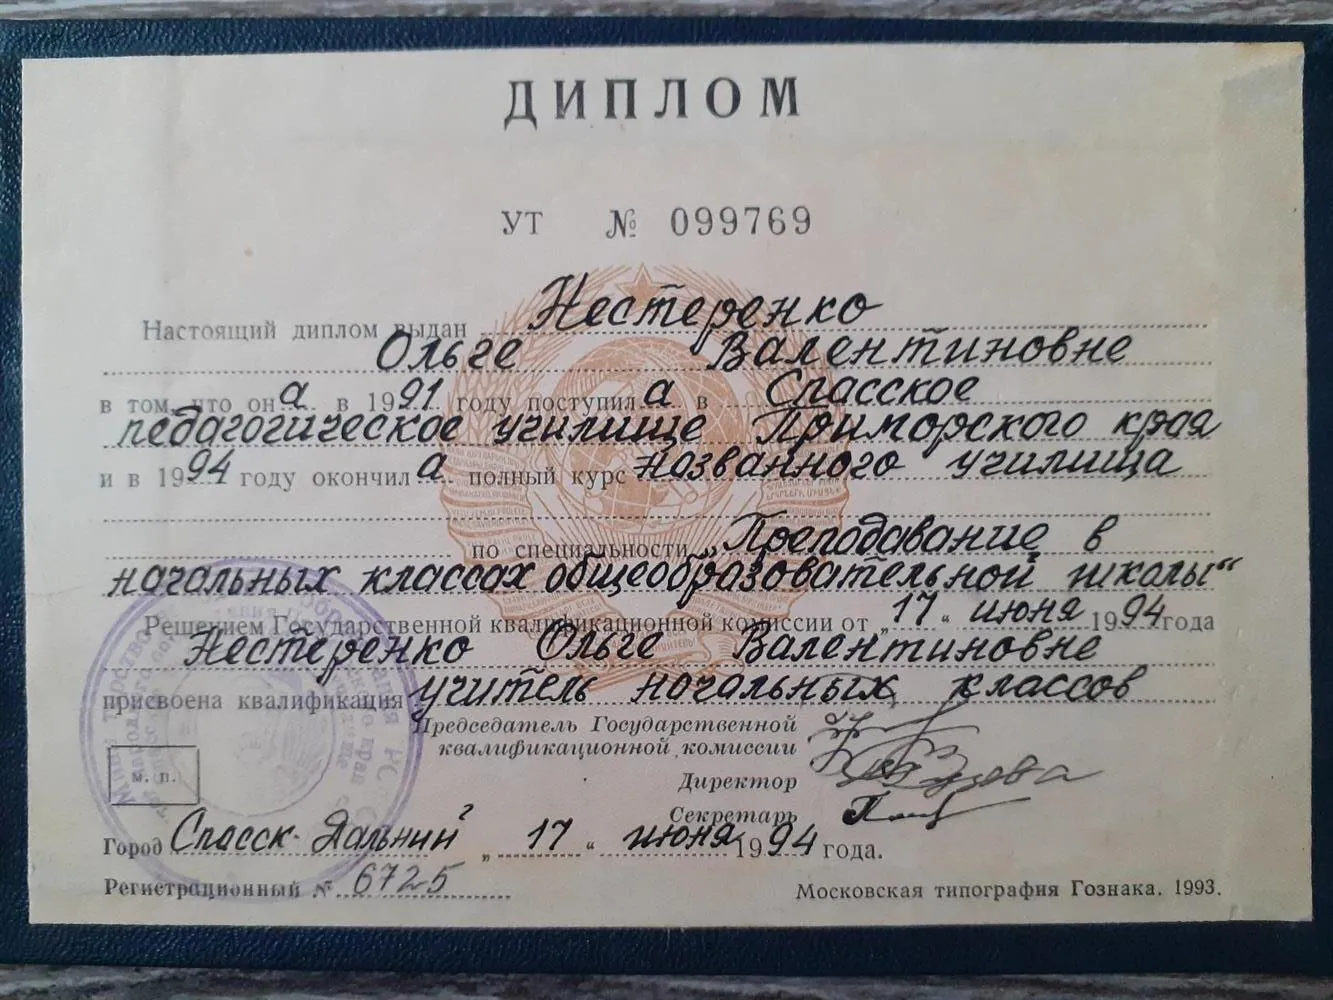 ДИПЛОМ
УТ № 099769
Настоящий диплом выдан Нестеренко
Ольге Валентиновне
в том, что она в 1991 году поступила в Спасское
педагогическое училище Приморского края
и в 1994 году окончила полный курс названного училища
по специальности „Преподавание в
начальных классах общеобразовательной школы“
Решением Государственной квалификационной комиссии от „17“ июня 1994 года
Нестеренко Ольге Валентиновне
присвоена квалификация учитель начальных классов
Председатель Государственной
квалификационной комиссии
Директор
Секретарь
м. п.
Город Спасск-Дальний „17“ июня 1994 года.
Регистрационный № 6725
Московская типография Гознака. 1993.